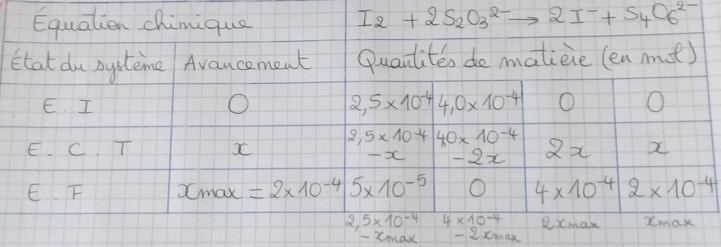 Equation chimique I₂ + 2S₂O₃²⁻ → 2I⁻ + S₄O₆²⁻
État du système Avancement Quantités de matière (en mol)
E. I 0 2,5×10⁻⁴ 4,0×10⁻⁴ 0 0
E. C. T x 2,5×10⁻⁴ - x 40×10⁻⁴ - 2x 2x x
E. F xmax = 2×10⁻⁴ 5×10⁻⁵ 0 4×10⁻⁴ 2×10⁻⁴
2,5×10⁻⁴ 4×10⁻⁴ 2xmax xmax
- xmax - 2xmax